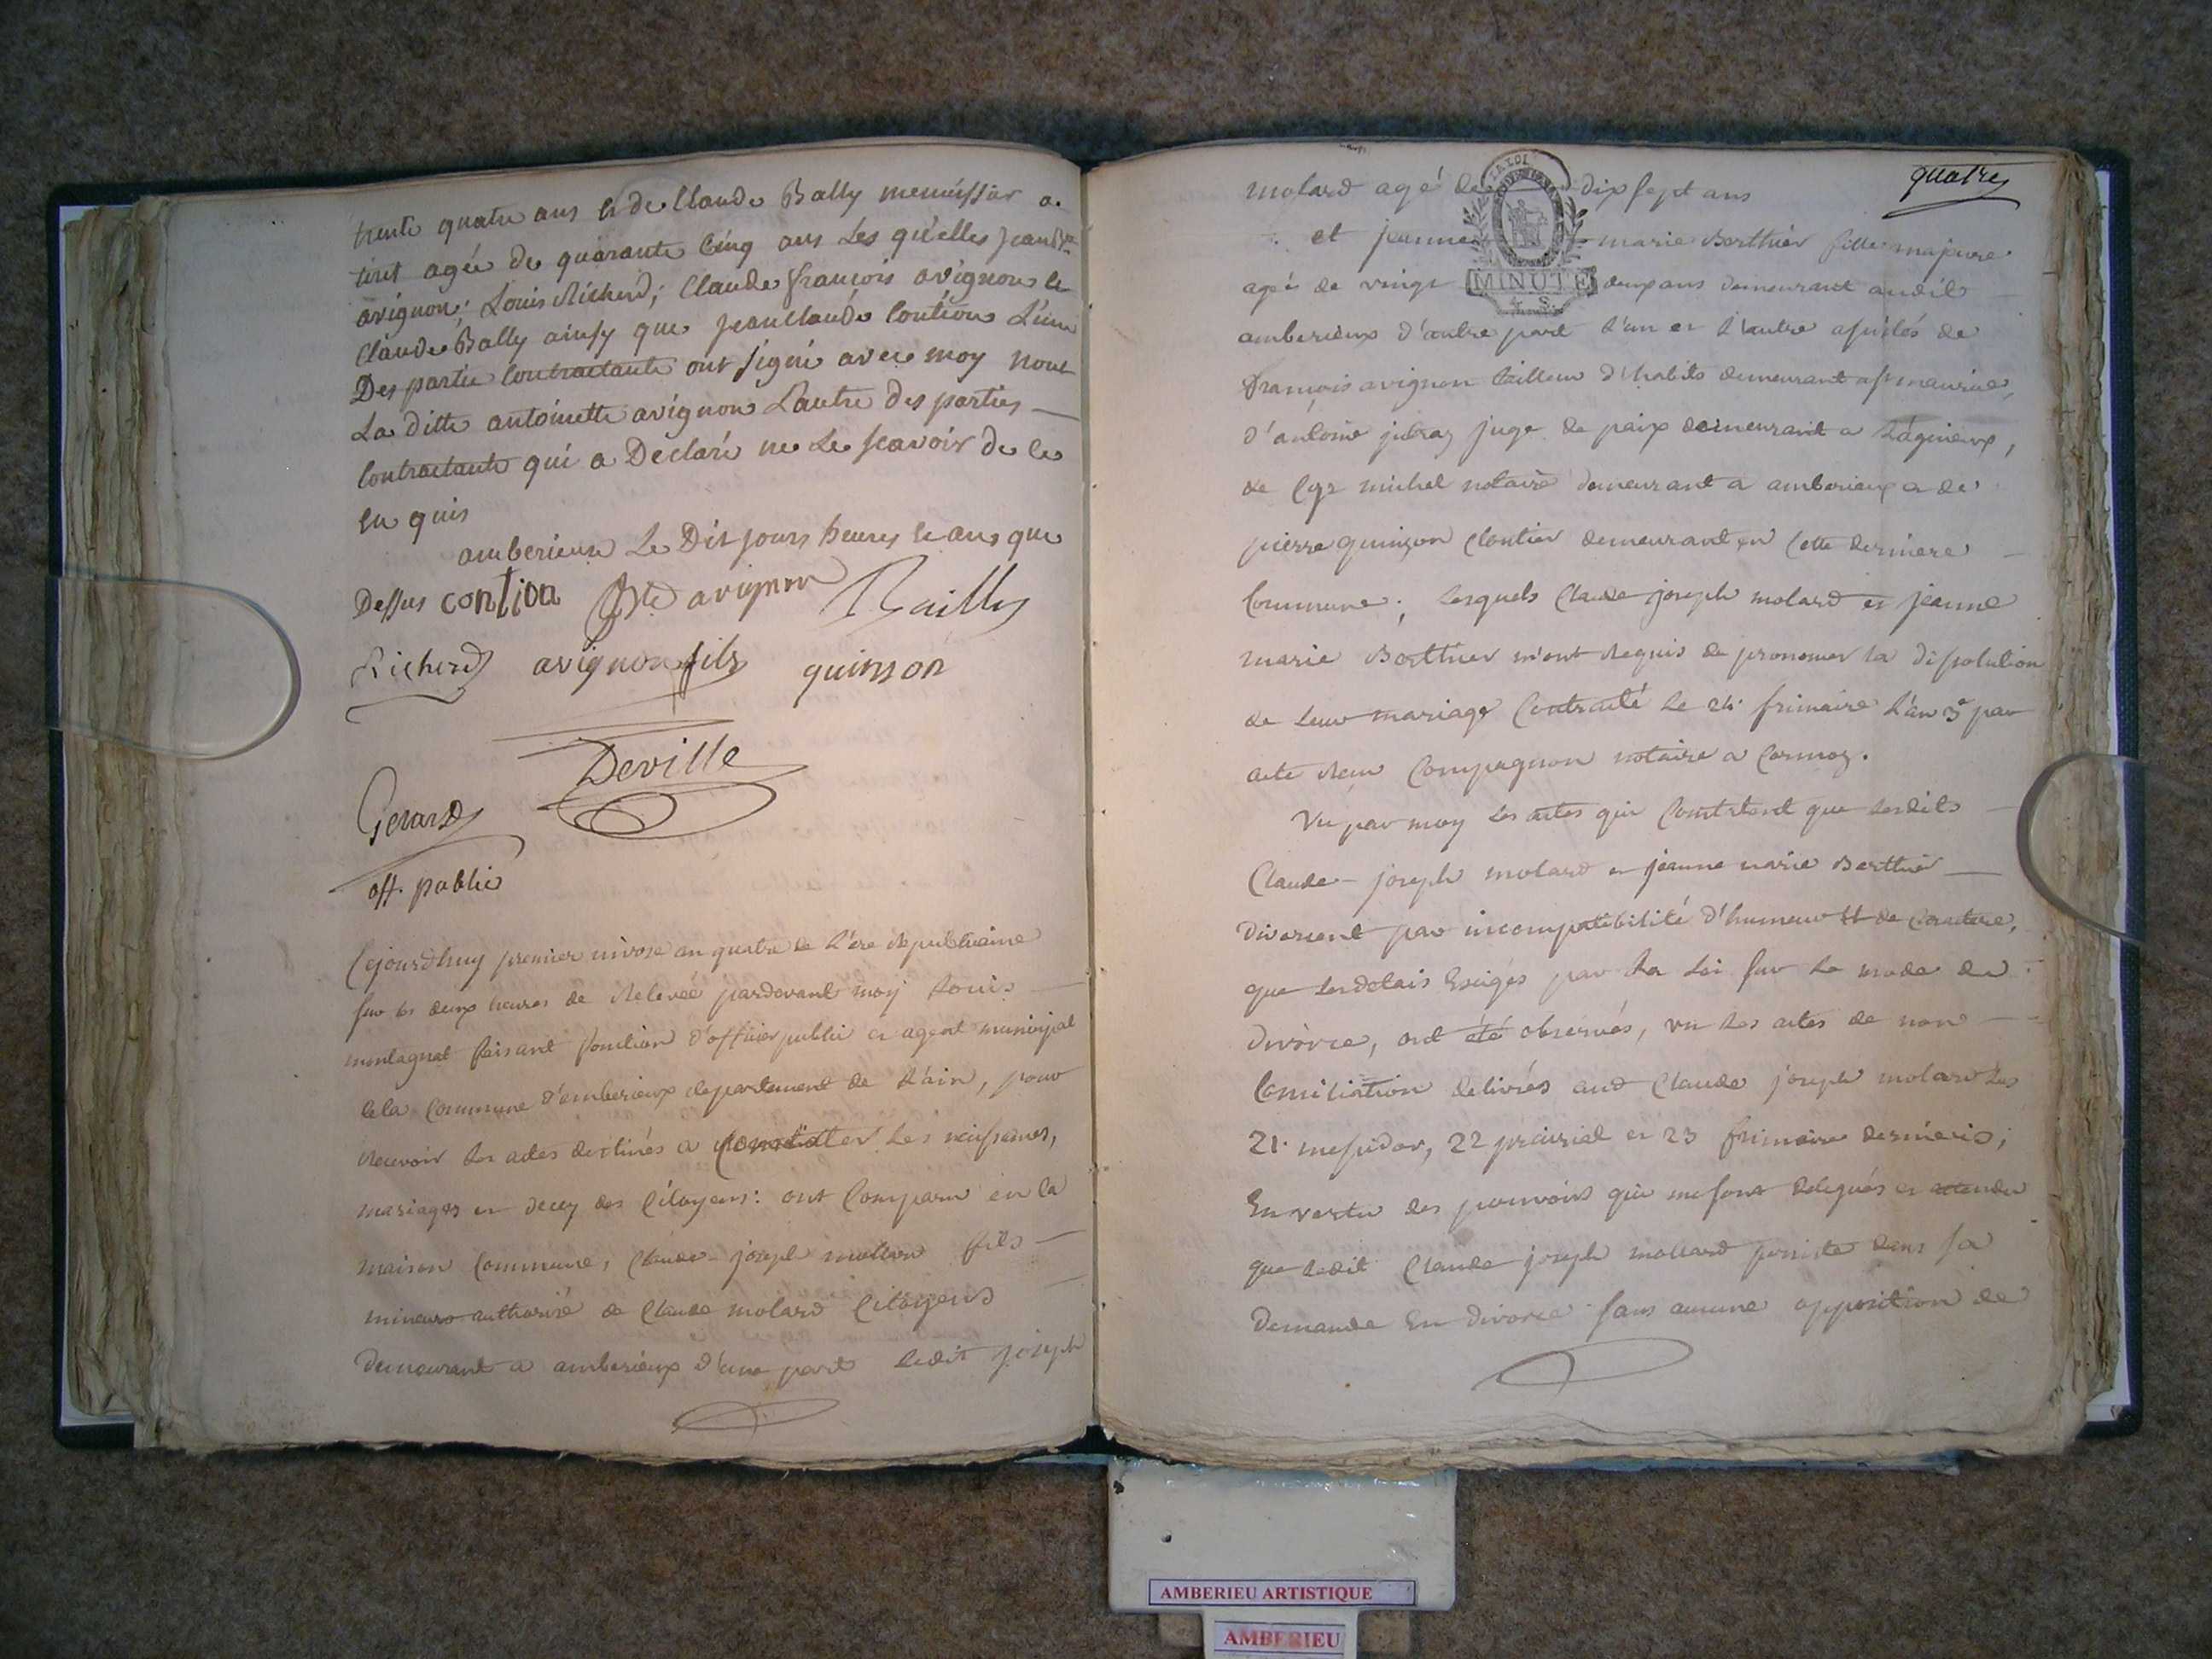 trente quatre ans et de Claude Bally menuissier a
tiret agée de quarante Cinq ans Les qu'elles jean Bte
avignon; Louis Richerd; Claude françois avignon et
Claude Bally ainsy que jean Claude Contion L'une
Des partie Contractante ont signé avec moy non
La ditte antoinette avignon L'autre des parties
Contractante qui a Déclaré ne Le scavoir de ce
en quis
amberieux Le Dit jours heures et ans que
Dessus contion Bte avignon Bailly
Richerd avignon fils quinson
Deville
Gerard
off. public
Cejourdhuy premier nivose an quatre de L'ere republicaine
sur les deux heures de relevée pardevant moy Louis
montagnat faisant fonction d'officier public et agent municipal
de la Commune d'amberieux departement de L'ain, pour
recevoir les actes destinés a Constatter Les naissances,
mariages et decey des Citoyens: ont Comparu en la
maison Commune, Claude-joseph mollard fils
mineur authorisé de Claude molard Citoyens
demeurant a amberieux d'une part Ledit joseph
quatre
molard agé de dix sept ans
et jeanne marie Berthier fille majeure
LA LOI
MINUTE
4 S.
agée de vingt deux ans demeurant audit
amberieux d'autre part L'un et L'autre assistés de
françois avignon tailleur d'habits demeurant a st maurice,
d'antoine juge de paix demeurant a Lagnieux,
de Cyr michel notaire demeurant a amberieux et de
pierre quinson Cloutier demeurant en Cette derniere
Commune; Lesquels Claude joseph molard et jeanne
marie Berthier m'ont requis de prononcer la dissolution
de Leur mariage Contracté Le 24 frimaire L'an 3e par
acte reçu Compagnon notaire a Cormoz.
Vu par moy Les actes qui Constatent que Lesdits
Claude-joseph molard et jeanne marie Berthier
divorcent par incompatibilité d'humeur et de Caractere,
que Les delais Exigés par La Loi sur Le mode du
divorce, ont été observés, vu Les actes de non
Conciliation delivrés aud Claude joseph molard Les
21 messidor, 22 prairial et 23 frimaire derniers;
En vertu des pouvoirs qui me sont delegués et attendu
que Ledit Claude joseph mollard persiste dans sa
Demande En divorce sans aucune opposition de
AMBERIEU ARTISTIQUE
AMBERIEU